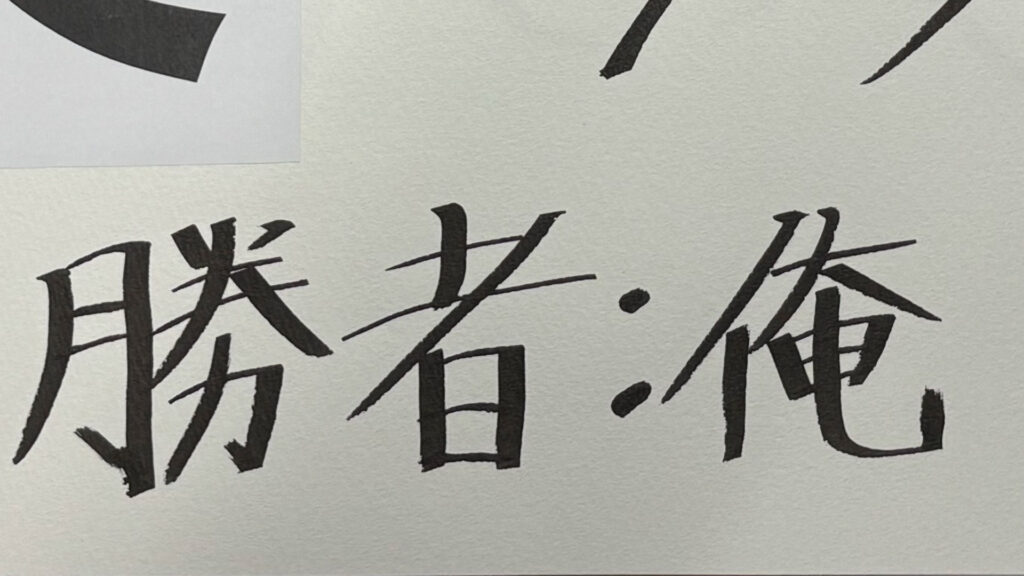 勝者:俺